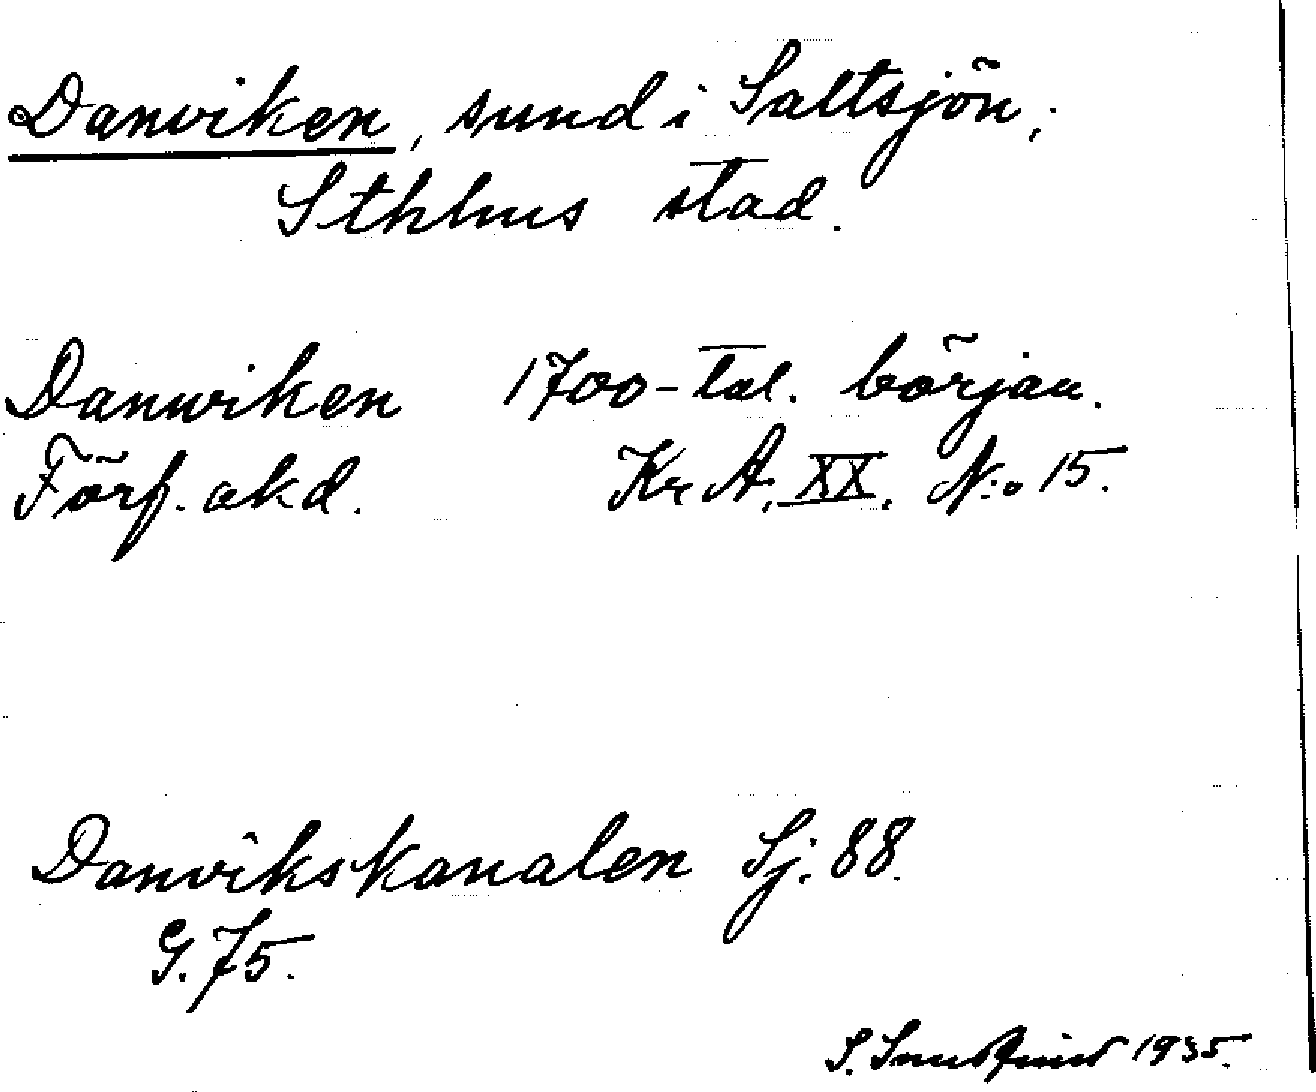 Danviken, sund i Saltsjön,
Sthlms stad.
Danwiken 1700-tal. början.
Förf. okd. Kr A. XX. N:o 15.
Danvikskanalen Sj. 88.
G. 75.
S. 1935.